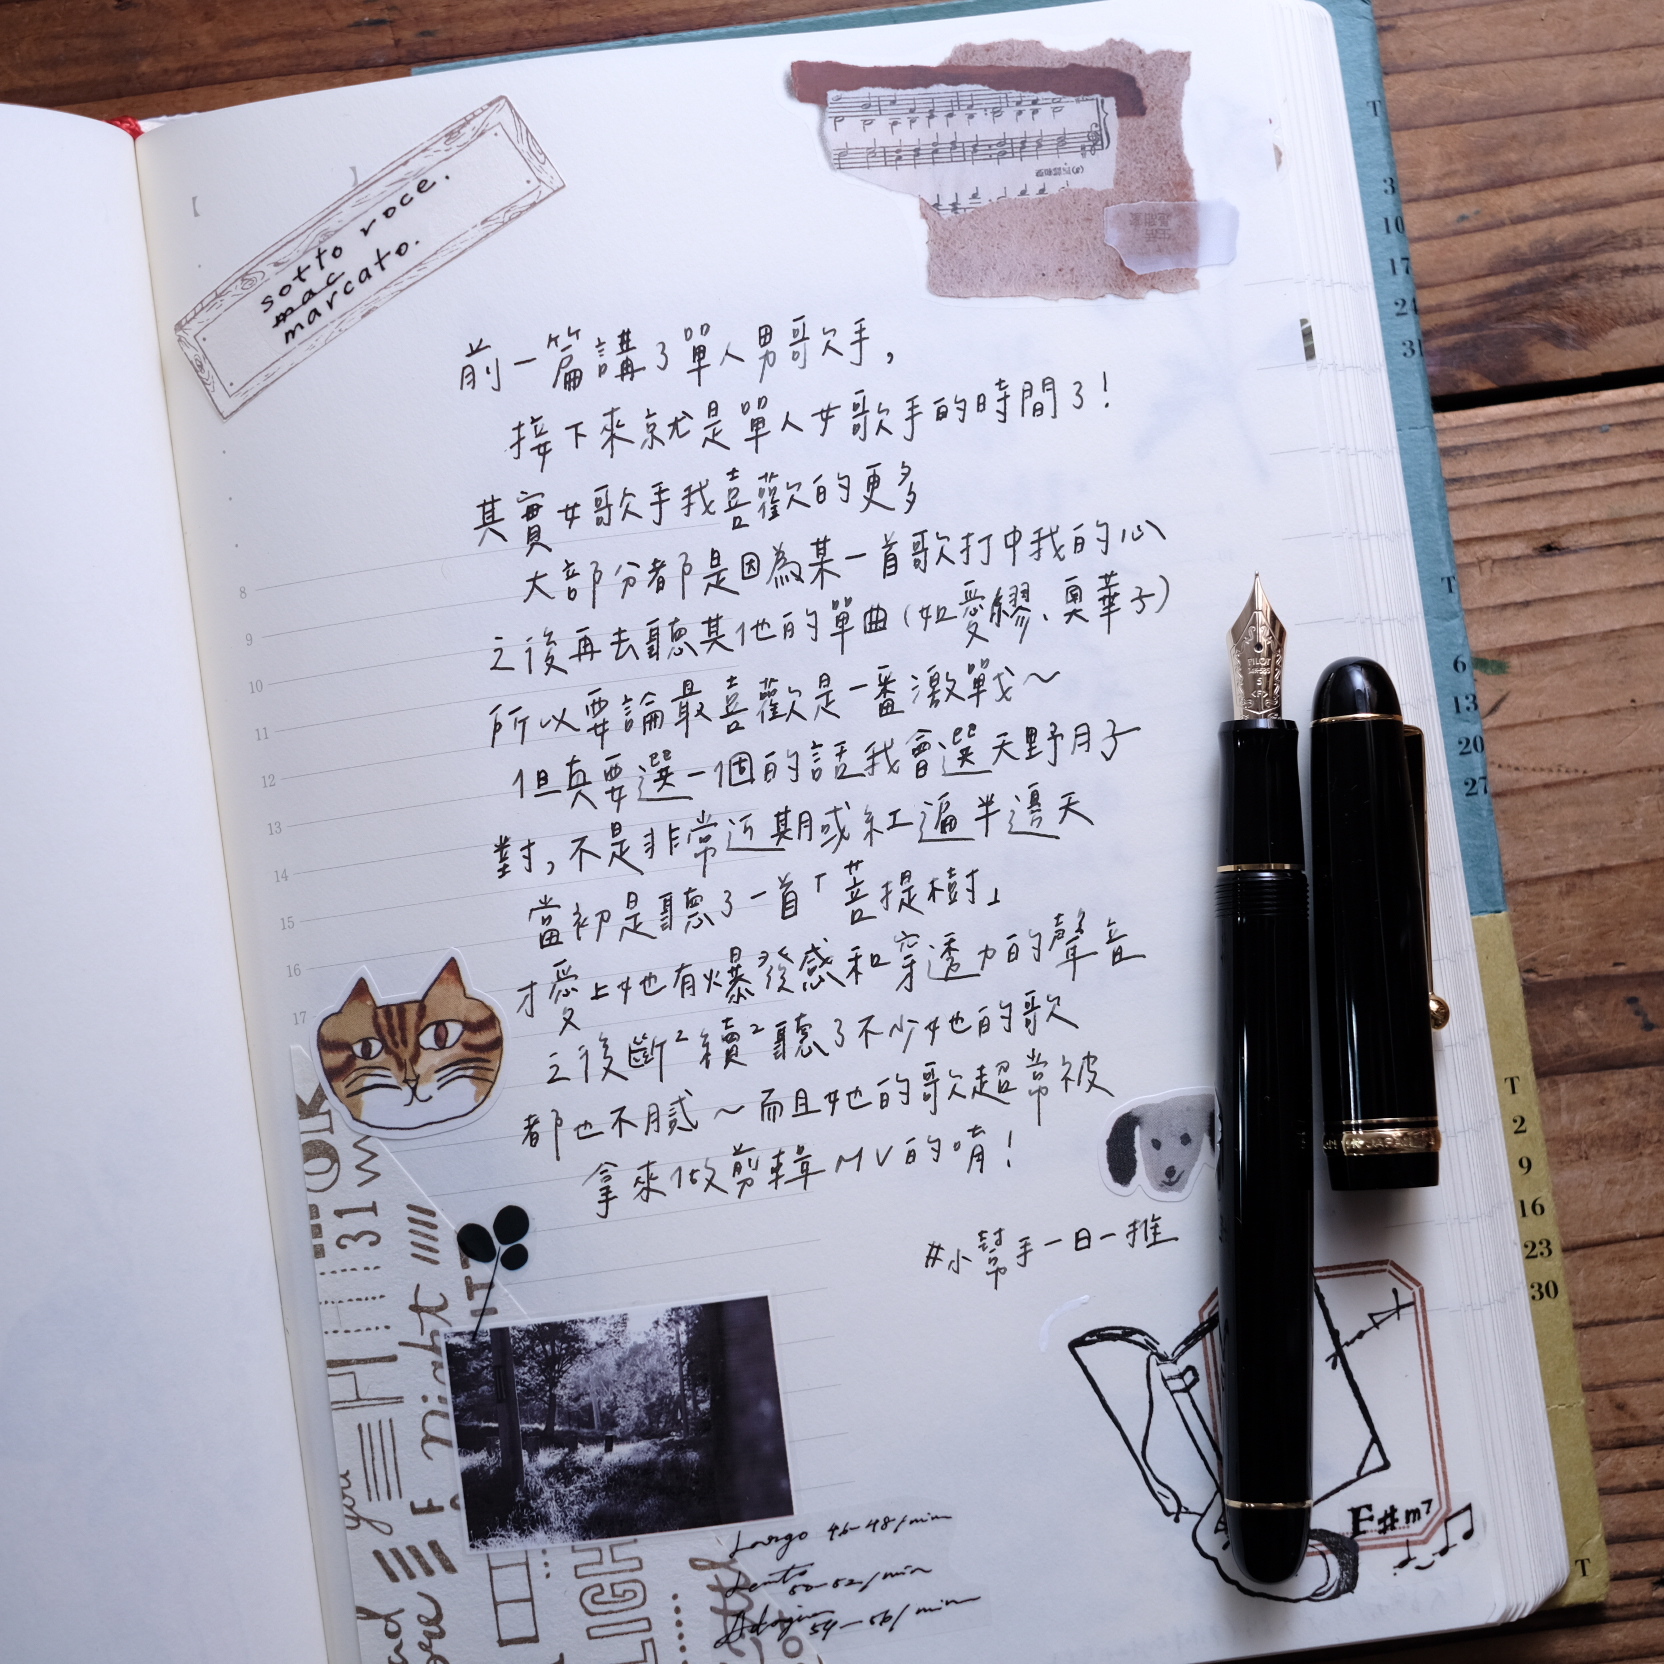 sotto voce.
mac
marcato.
前一篇講了單人男歌手,
接下來就是單人女歌手的時間了!
其實女歌手我喜歡的更多
大部分都是因為某一首歌打中我的心
之後再去聽其他的單曲(如愛繆、奧華子)
所以要論最喜歡是一番激戰~
但真要選一個的話我會選天野月子
對,不是非常近期或紅遍半邊天
當初是聽了一首「菩提樹」
才愛上她有爆發感和穿透力的聲音
之後斷²續²聽了不少她的歌
都也不膩~而且她的歌超常被
拿來做剪輯MV的唷!
#小幫手一日一推
8
9
10
11
12
13
14
15
16
17
31
Night
you
LIGH
Largo 46-48/min
Lento 50-52/min
Adagio 54-56/min
F#m7
PILOT
5
<F>
JAPAN
T
3
10
17
24
31
T
6
13
20
27
T
2
9
16
23
30
T